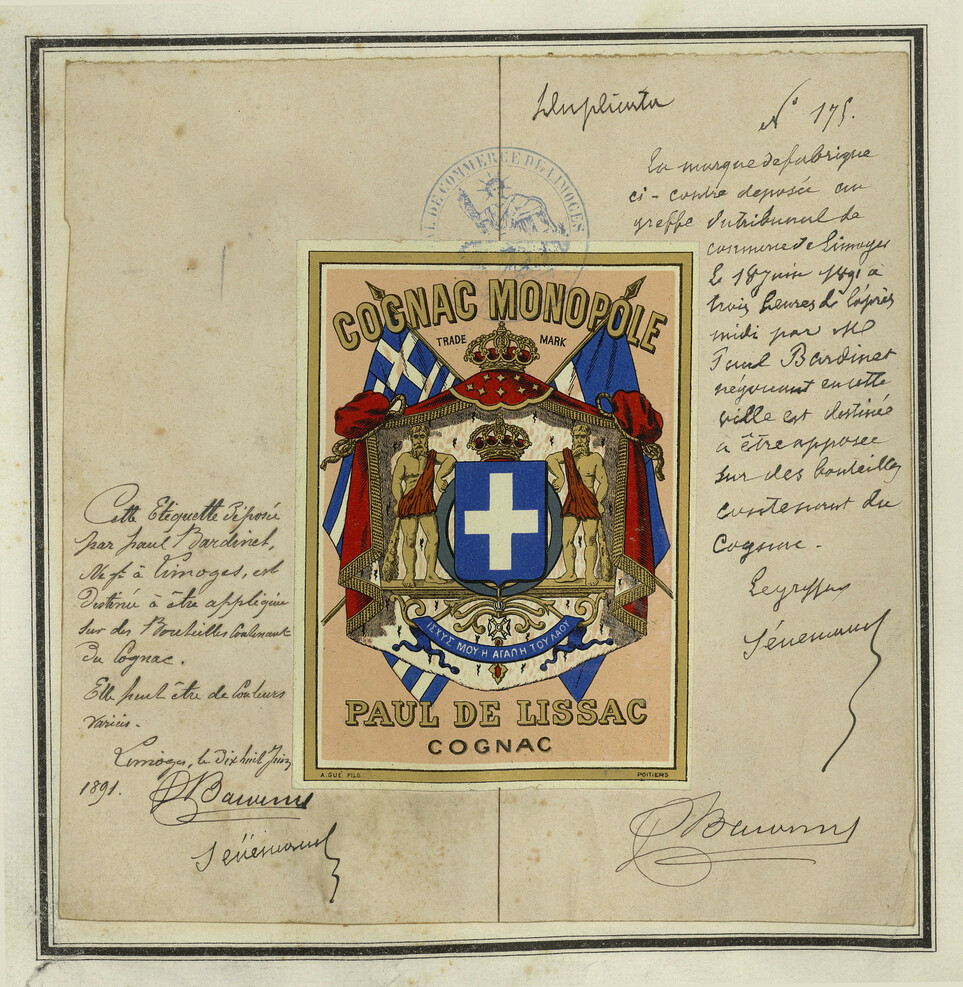 Duplicata
N° 175.
La marque de fabrique
ci-contre déposée au
greffe du tribunal de
commerce de Limoges
le 18 juin 1891 à
trois heures de l'après
midi par M
Paul Bardinet
négociant en cette
ville est destinée
à être apposée
sur des bouteilles
contenant du
Cognac.
Sénémaud
AL DE COMMERCE DE LIMOGES
COGNAC MONOPOLE
TRADE MARK
ΙΣΧΥΣ ΜΟΥ Η ΑΓΑΠΗ ΤΟΥ ΛΑΟΥ
PAUL DE LISSAC
COGNAC
A. GUÉ FILS POITIERS
Cette Etiquette déposée
par Paul Bardinet,
Négt à Limoges, est
Destinée à être appliquée
sur des Bouteilles Contenant
du Cognac.
Elle peut être de Couleurs
variées.
Limoges, le dix huit Juin
1891.
Sénémaud